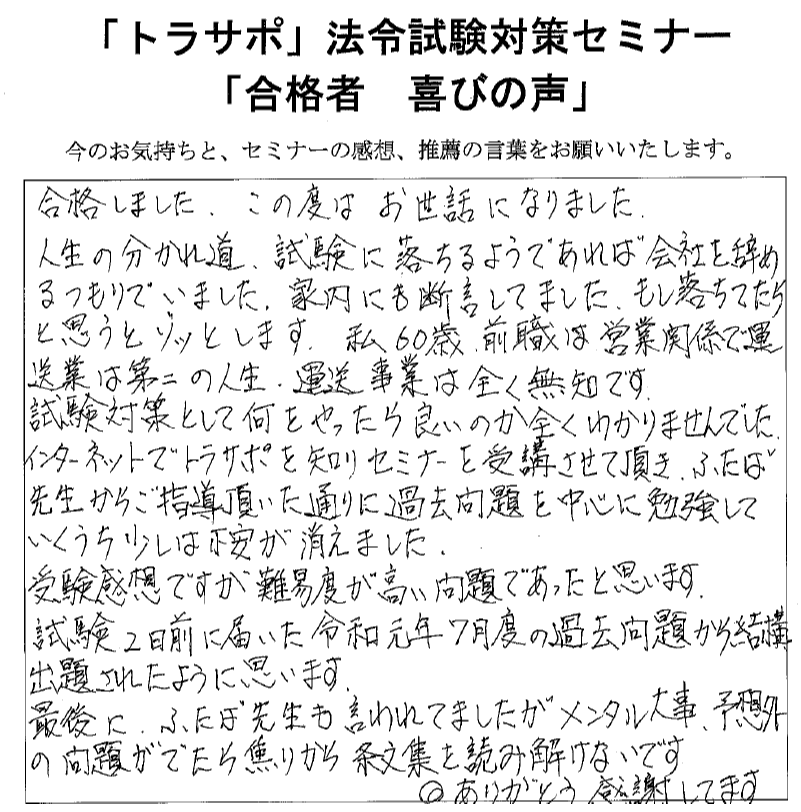 「トラサポ」法令試験対策セミナー
「合格者　喜びの声」
今のお気持ちと、セミナーの感想、推薦の言葉をお願いいたします。
合格しました．この度は お世話になりました．
人生の分かれ道、試験に落ちるようであれば会社を辞め
るつもりでいました．家内にも断言してました．もし落ちてたら
と思うとゾッとします．私60歳．前職は営業関係で運
送業は第二の人生．運送事業は全く無知です．
試験対策として何をやったら良いのか全くわかりませんでした．
インターネットでトラサポを知りセミナーを受講させて頂き．ふたば
先生からご指導頂いた通りに過去問題を中心に勉強して
いくうち少しは不安が消えました．
受験感想ですが難易度が高い問題であったと思います．
試験2日前に届いた令和元年7月度の過去問題から結構
出題されたように思います．
最後に．ふたば先生も言われてましたがメンタル大事．予想外
の問題がでたら焦りから条文集を読み解けないです
◎ありがとう 感謝してます